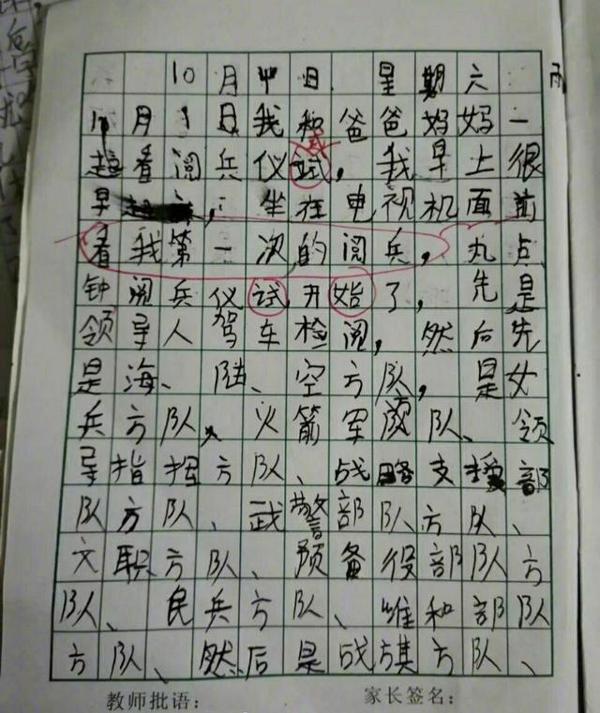 10月 日 星期六 雨
10月1日我和爸爸妈妈一
起看阅兵仪试,我早上很
式
早起 坐在电视机面前
看我第一次的阅兵,九点
钟阅兵仪试开始了,先是
领导人驾车检阅,然后先
是海、陆、空方队,是女
兵方队、火箭军方队、领
导指挥方队、战略支援部
队方队、武警部队方队、
文职方队、预备役部队方
队、民兵方队、维和部队
方队、然后是战旗方队、
教师批语: 家长签名: